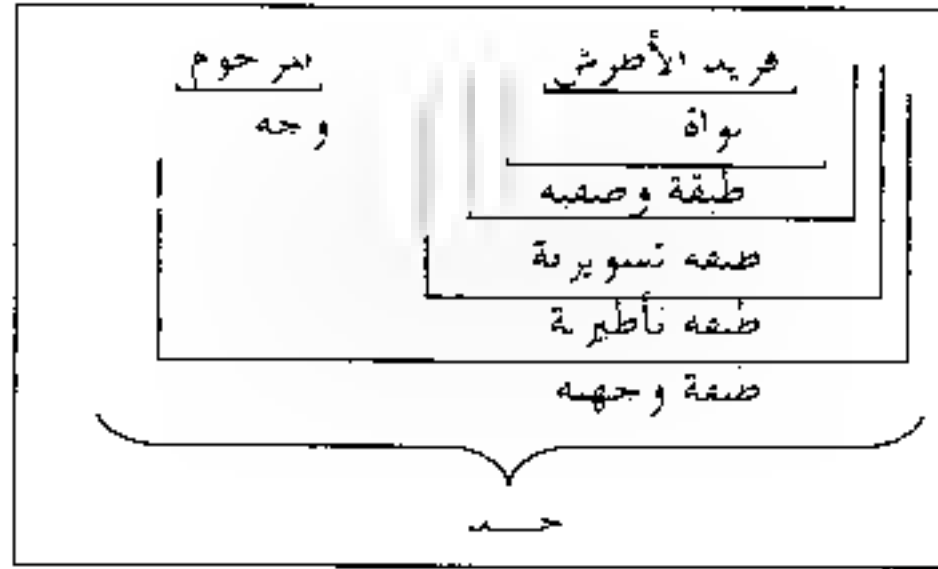 فريد الأطرش المرحوم
نواة وجه
طبقة وصفية
طبقة تسويرية
طبقة تأطيرية
طبقة وجهية
حــــد